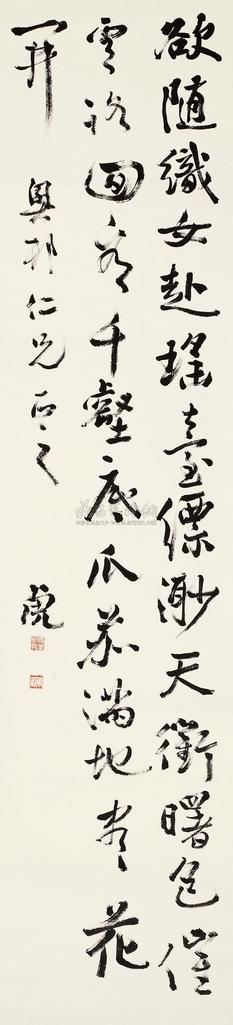 欲随織女赴瑤臺縹渺天衢曙色催
雲路回看千壑底瓜茄滿地盡花
開 奧邦仁兄正之